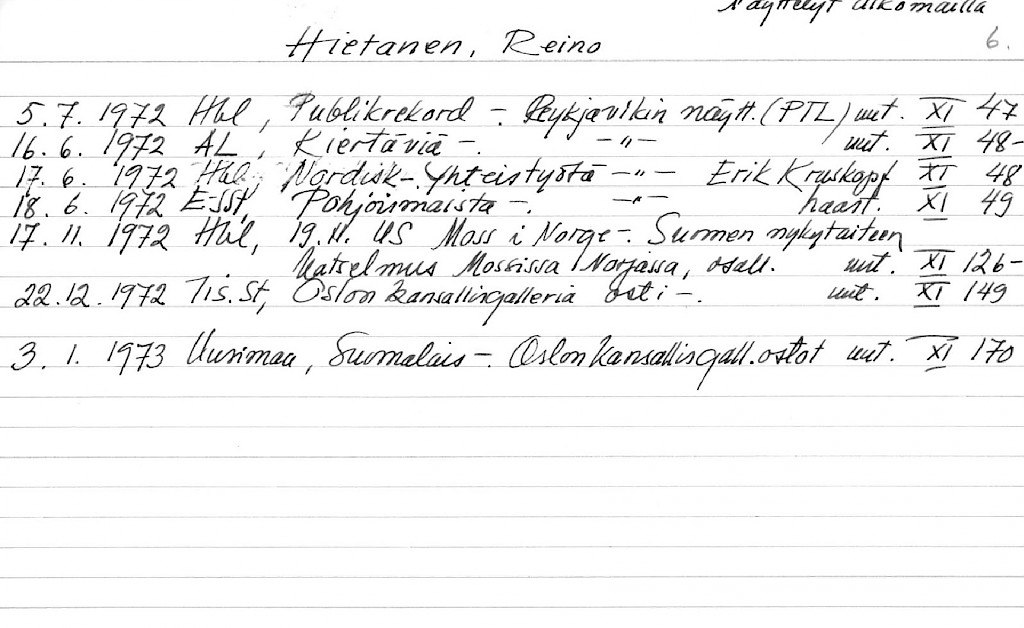 Näyttelyt ulkomailla
Hietanen, Reino 6.
5.7. 1972 Hbl, Publikrekord -. Reykjavikin näytt. (PTL) uut. XI 47
16.6. 1972 AL, Kiertäviä -. -"- uut. XI 48-
17.6. 1972 Hbl, Nordisk -. Yhteistyötä -"- Erik Kruskopf XI 48
18.6. 1972 ESSt, Pohjoismaista -. -"- haast. XI 49
17.11. 1972 Hbl, 19.11. US Moss i Norge -. Suomen nykytaiteen
katselmus Mossissa Norjassa, osall. uut. XI 126-
22.12. 1972 Tis.St, Oslon kansallisgalleria osti -. uut. XI 149
3.1. 1973 Uusimaa, Suomalais -. Oslon kansallisgall. ostot uut. XI 170